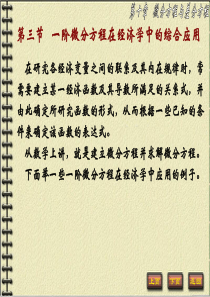 第十章 微分方程与差分方程
第三节 一阶微分方程在经济学中的综合应用
在研究各经济变量之间的联系及其内在规律时，常
需要建立某一经济函数及其导数所满足的关系式，并
由此确定所研究函数的形式，从而根据一些已知的条
件来确定该函数的表达式。
从数学上讲，就是建立微分方程并求解微分方程。
下面举一些一阶微分方程在经济学中应用的例子。
上页 下页 返回